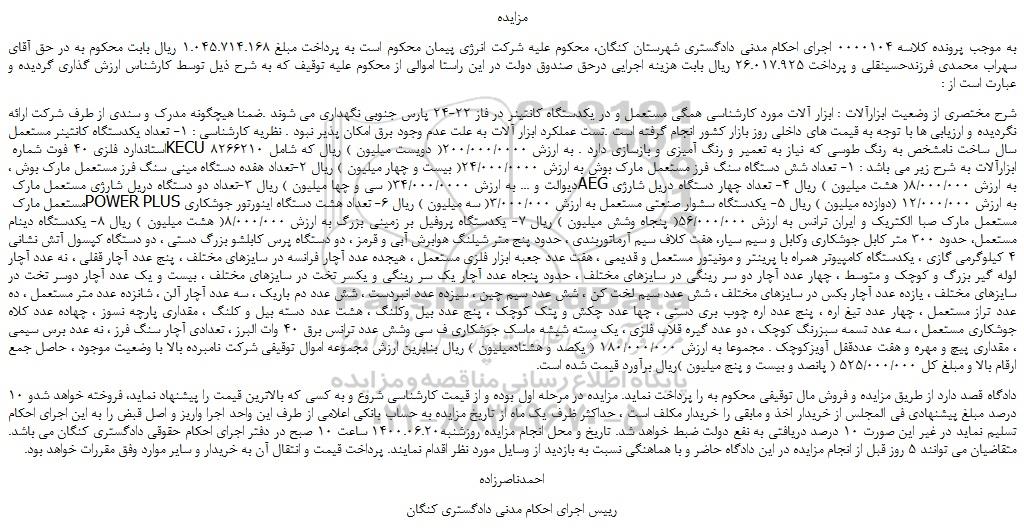 مزایده
به موجب پرونده کلاسه ۰۰۰۰۱۰۴ اجرای احکام مدنی دادگستری شهرستان کنگان، محکوم علیه شرکت انرژی پیمان محکوم است به پرداخت مبلغ ۱.۰۴۵.۷۱۴.۱۶۸ ریال بابت محکوم به در حق آقای
سهراب محمدی فرزندحسینقلی و پرداخت ۲۶.۰۱۷.۹۲۵ ریال بابت هزینه اجرایی درحق صندوق دولت در این راستا اموالی از محکوم علیه توقیف که به شرح ذیل توسط کارشناس ارزش گذاری گردیده و
عبارت است از :
شرح مختصری از وضعیت ابزارآلات : ابزار آلات مورد کارشناسی همگی مستعمل و در یکدستگاه کانتینر در فاز ۲۲-۲۴ پارس جنوبی نگهداری می شوند .ضمنا هیچگونه مدرک و سندی از طرف شرکت ارائه
نگردیده و ارزیابی ها با توجه به قیمت های داخلی روز بازار کشور انجام گرفته است .تست عملکرد ابزار آلات به علت عدم وجود برق امکان پذیر نبود . نظریه کارشناسی : ۱- تعداد یکدستگاه کانتینر مستعمل
سال ساخت نامشخص به رنگ طوسی که نیاز به تعمیر و رنگ آمیزی و بازسازی دارد . به ارزش ۲۰۰/۰۰۰/۰۰۰۰( دویست میلیون ) ریال که شامل KECU ۸۲۶۶۲۱۰استاندارد فلزی ۴۰ فوت شماره
ابزارآلات به شرح زیر می باشد : ۱- تعداد شش دستگاه سنگ فرز مستعمل مارک بوش به ارزش ۲۴/۰۰۰/۰۰۰۰( بیست و چهار میلیون ) ریال ۲-تعداد هفده دستگاه مینی سنگ فرز مستعمل مارک بوش ،
به ارزش ۸/۰۰۰/۰۰۰( هشت میلیون ) ریال ۴- تعداد چهار دستگاه دریل شارژی AEGدیوالت و ... به ارزش ۳۴/۰۰۰/۰۰۰۰( سی و چها میلیون ) ریال ۳-تعداد دو دستگاه دریل شارژی مستعمل مارک
به ارزش ۱۲/۰۰۰/۰۰۰ (دوازده میلیون ) ریال ۵- یکدستگاه سشوار صنعتی مستعمل به ارزش ۳/۰۰۰/۰۰۰( سه میلیون ) ریال ۶- تعداد هشت دستگاه اینورتور جوشکاری POWER PLUSمستعمل مارک
مستعمل مارک صبا الکتریک و ایران ترانس به ارزش ۵۶/۰۰۰/۰۰۰( پنجاه وشش میلیون ) ریال ۷- یکدستگاه پروفیل بر زمینی بزرگ به ارزش ۸/۰۰۰/۰۰۰( هشت میلیون ) ریال ۸- یکدستگاه دینام
مستعمل، حدود ۳۰۰ متر کابل جوشکاری وکابل و سیم سیار، هفت کلاف سیم آرماتوربندی ، حدود پنج متر شیلنگ هوابرش آبی و قرمز ، دو دستگاه پرس کابلشو بزرگ دستی ، دو دستگاه کپسول آتش نشانی
۴ کیلوگرمی گازی ، یکدستگاه کامپیوتر همراه با پرینتر و مونیتور مستعمل و قدیمی ، هفت عدد جعبه ابزار فلزی مستعمل ، هیجده عدد آچار فرانسه در سایزهای مختلف ، پنج عدد آچار قفلی ، نه عدد آچار
لوله گیر بزرگ و کوچک و متوسط ، چهار عدد آچار دو سر رینگی در سایزهای مختلف ، حدود پنجاه عدد آچار یک سر رینگی و یکسر تخت در سایزهای مختلف ، بیست و یک عدد آچار دوسر تخت در
سایزهای مختلف ، یازده عدد آچار بکس در سایزهای مختلف ، شش عدد سیم لخت کن ، شش عدد سیم چین ، سیزده عدد انبردست ، شش عدد دم باریک ، سه عدد آچار آلن ، شانزده عدد متر مستعمل ، ده
عدد تراز مستعمل ، چهار عدد تیغ اره ، پنج عدد اره چوب بری دستی ، چها عدد چکش و پتک کوچک ، پنج عدد بیل وکلنگ ، هشت عدد دسته بیل و کلنگ ، مقداری پارچه نسوز ، چهاده عدد کلاه
جوشکاری مستعمل ، سه عدد تسمه سبزرنگ کوچک ، دو عدد گیره قلاب فلزی ، یک بسته شیشه ماسک جوشکاری ف سی وشش عدد ترانس برق ۴۰ وات البرز ، تعدادی آچار سنگ فرز ، نه عدد برس سیمی
، مقداری پیچ و مهره و هفت عددقفل آویزکوچک . مجموعا به ارزش ۱۸۰/۰۰۰/۰۰۰ ( یکصد و هشتادمیلیون ) ریال بنابرین ارزش مجموعه اموال توقیفی شرکت نامبرده بالا با وضعیت موجود ، حاصل جمع
ارقام بالا و مبلغ کل ۵۲۵/۰۰۰/۰۰۰ ( پانصد و بیست و پنج میلیون )ریال برآورد قیمت شده است.
دادگاه قصد دارد از طریق مزایده و فروش مال توقیفی محکوم به را پرداخت نماید. مزایده در مرحله اول بوده و از قیمت کارشناسی شروع و به کسی که بالاترین قیمت را پیشنهاد نماید، فروخته خواهد شدو ۱۰
درصد مبلغ پیشنهادی فی المجلس از خریدار اخذ و مابقی را خریدار مکلف است ، حداکثر ظرف یک ماه از تاریخ مزایده به حساب بانکی اعلامی از طرف این واحد اجرا واریز و اصل قبض را به این اجرای احکام
تسلیم نماید در غیر این صورت ۱۰ درصد دریافتی به نفع دولت ضبط خواهد شد. تاریخ و محل انجام مزایده روزشنبه۱۴۰۰.۰۶.۲۰ ساعت ۱۰ صبح در دفتر اجرای احکام حقوقی دادگستری کنگان می باشد.
متقاضیان می توانند ۵ روز قبل از انجام مزایده در این دادگاه حاضر و با هماهنگی نسبت به بازدید از وسایل مورد نظر اقدام نمایند. پرداخت قیمت و انتقال آن به خریدار و سایر موارد وفق مقررات خواهد بود.
احمدناصرزاده
رییس اجرای احکام مدنی دادگستری کنگان
پایگاه اطلاع رسانی مناقصه و مزایده
۰۲۱-۸۸۳۴۹۶۷۰-۵